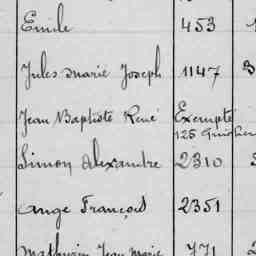 Emile 453
Jules Marie Joseph 1147
Jean Baptiste René Exempté
125
Simon Alexandre 2310
Ange François 2351
Mathurin Jean Marie 771